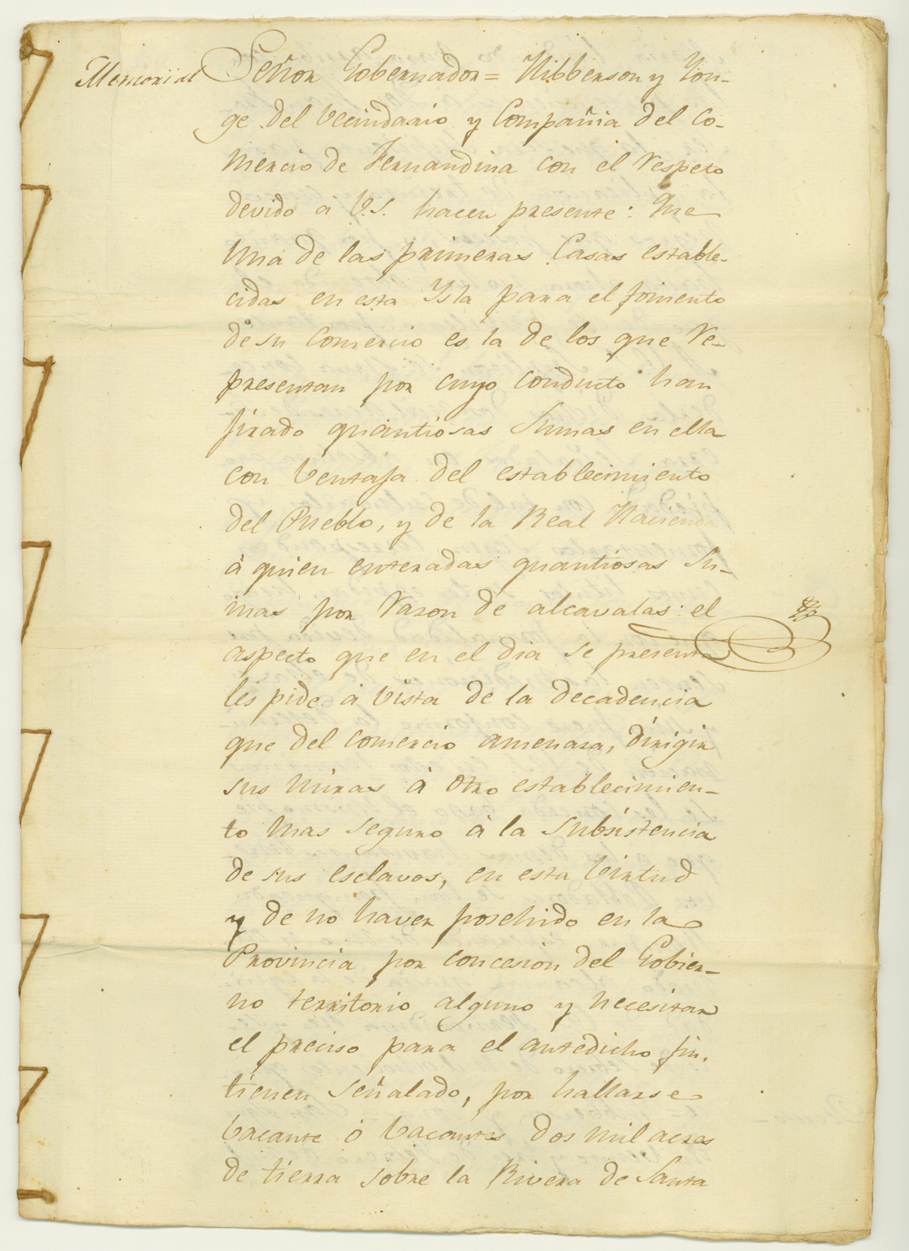 Memorial Señor Gobernador = Hibberson y Yon-
ge del Vecindario y Compañia del Co-
mercio de Fernandina con el respeto
devido à V.S. hacen presente: Que
una de las primeras Casas estable-
cidas en esta Ysla para el fomento
de su comercio es la de los que re-
presentan por cuyo conducto han
jirado quantiosas Sumas en ella
con Ventaja del establecimiento
del Pueblo, y de la Real Hacienda
à quien enteradas quantiosas Su-
mas por razon de alcavalas: el
aspecto que en el dia se presenta
les pide à vista de la decadencia
que del comercio amenaza, dirigir
sus miras à otro establecimien-
to mas seguro à la subsistencia
de sus esclavos, en esta virtud
y de no haver posehido en la
Provincia por concesion del Gobier-
no territorio alguno y necesitar
el preciso para el antedicho fin,
tienen señalado, por hallarse
bacante ò bacantes dos mil acres
de tierra sobre la Rivera de Santa